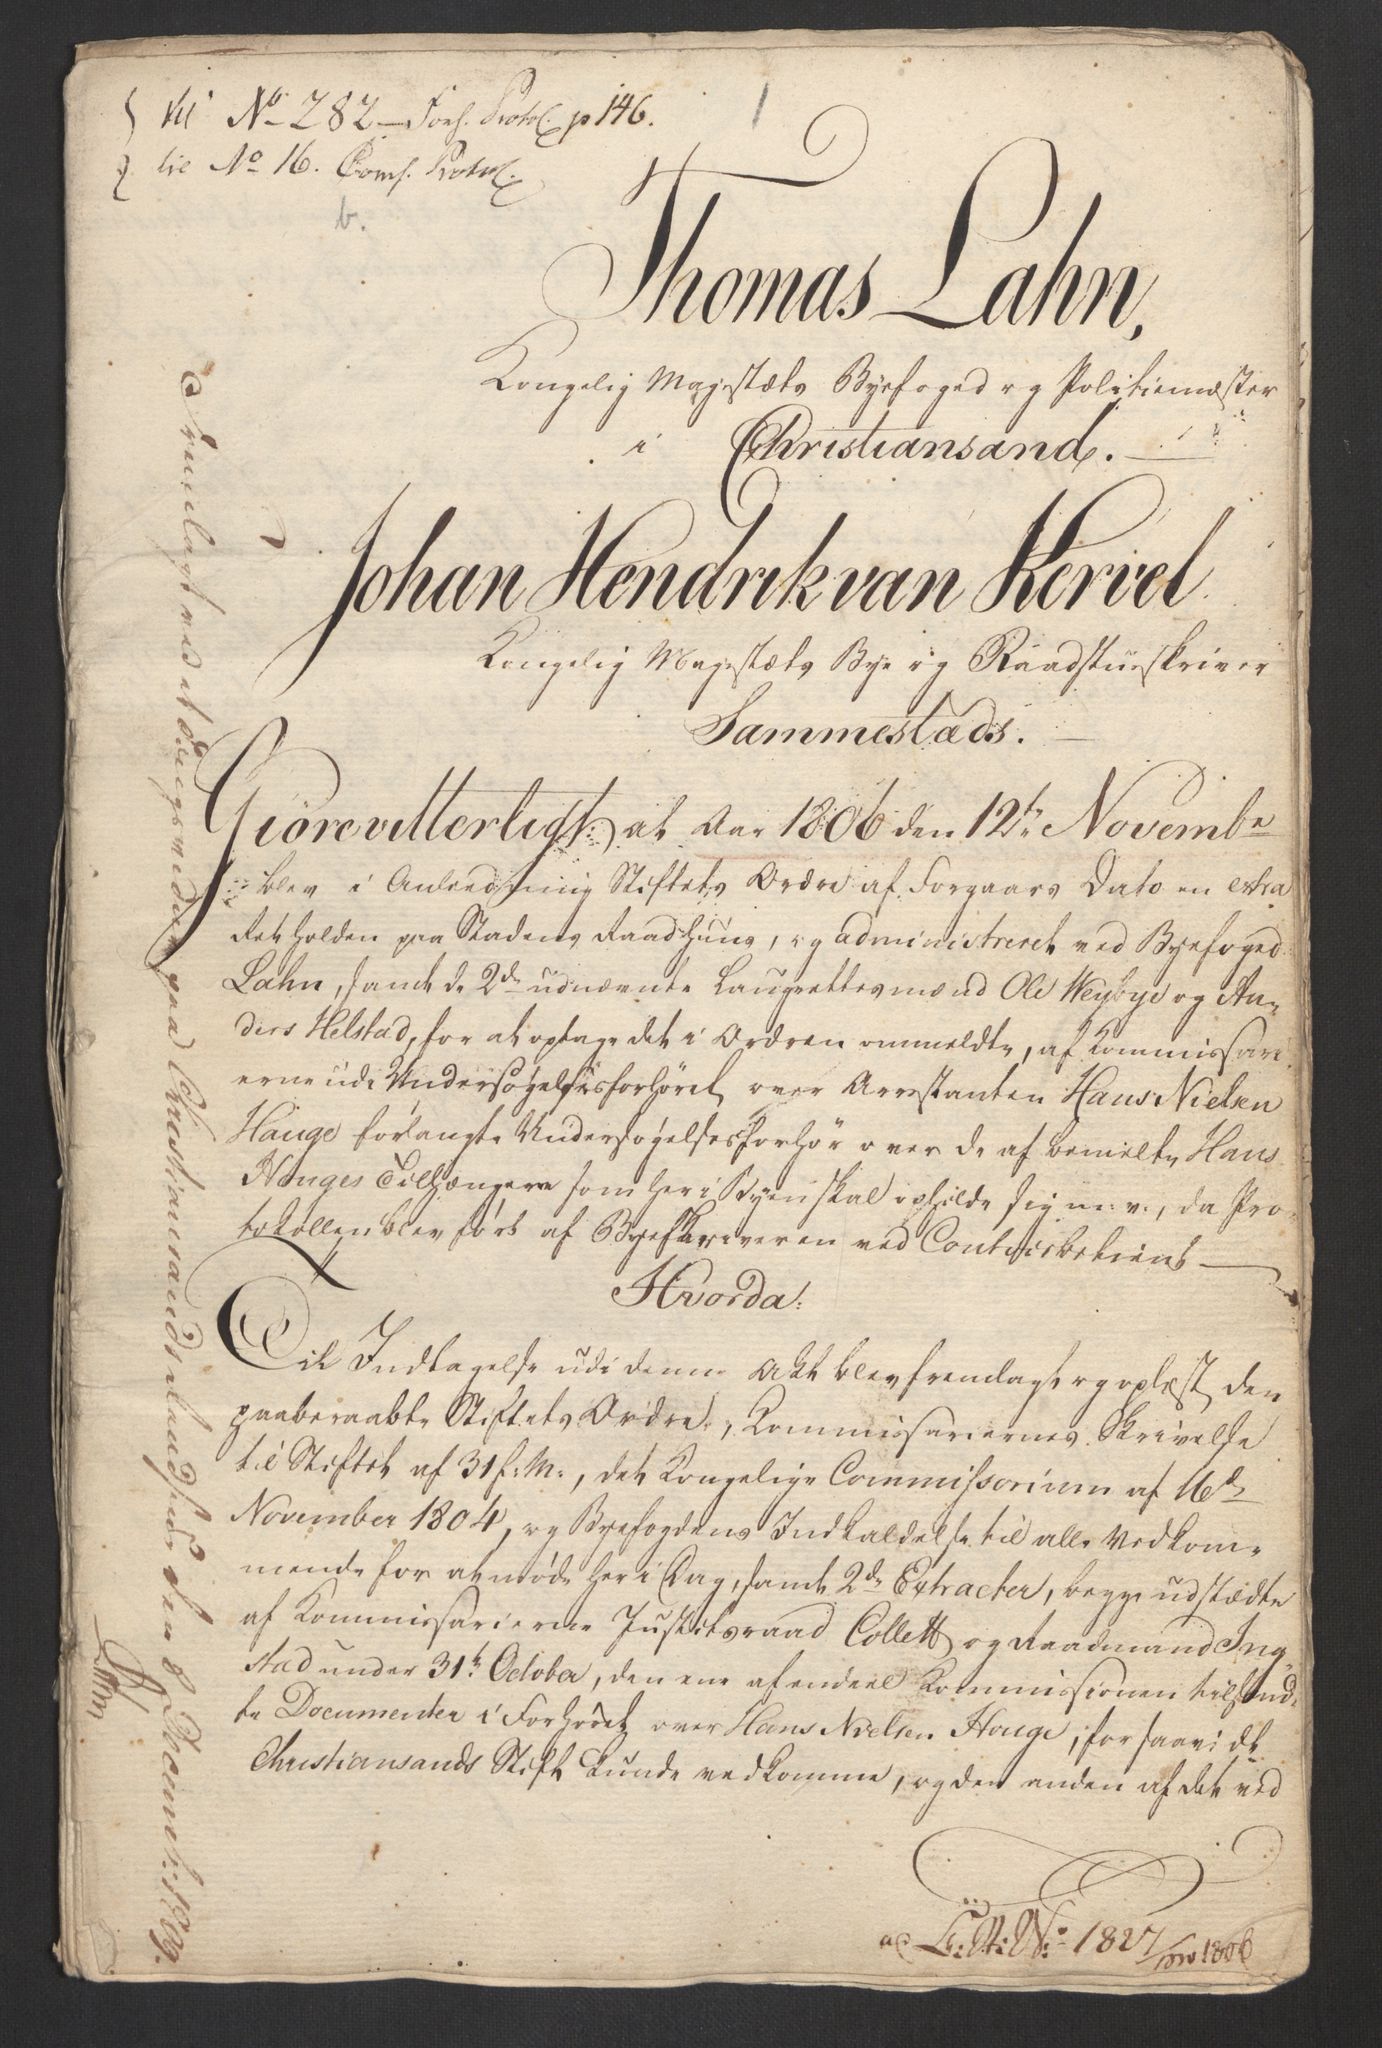 til No 282 - Forh. Protol. p 146.
til No 16. Comh. Protol.
1
b.
Thomas Lahn,
Kongelig Majestæts Byefoged og Politiemæster
i Christiansand.
Johan Hendrik van Kervel
Kongelig Majestæts Bye og Raadstueskriver
Sammestæds.
Giøre vitterligt: at Aar 1806 den 12te Novembr
blev i Anledning Stiftets Ordre af Forgaars Dato en extra
Ret holden paa Stadens Raadhuus, og administreret ved Byefoged
Lahn, samt de 2de udnævnte Laugrettesmænd Ole Weybye og An-
ders Helstad, for at optage det i Ordren ommeldte, af Kommissari
erne udi Undersøgelsesforhöret over Arrestanten Hans Nielsen
Hauge forlangte Undersøgelsesforhör over de af bemelte Hans
Hauges Tilhængere som her i Byen skal opholde sig m: v:, da Pro-
tokollen blev ført af Byeskriveren ved Contoirbetient
Hvorda:
Til Indtagelse udi denne Akt blev fremlagt og oplæst den
paaberaabte Stiftets Ordre, Kommissariernes Skrivelse
til Stiftet af 31 f: M:, det Kongelige Commissorium af 16de
November 1804, og Byefogdens Indkaldelse til alle Vedkom-
mende for at møde her i Dag, samt 2de Extracter, begge udstædte
af Kommissarierne Justitsraad Collett og Raadmand Ing-
stad under 31te October, den ene af endeel Kommissionen tilsend-
te Documenter i Forhöret over Hans Nielsen Houge, forsaavidt
Christiansands Stift kunde vedkomme, og den anden af det ved
No 1827/1806
Fremlagt ved et Træg paa Christiansands Raadhuus den 1809.